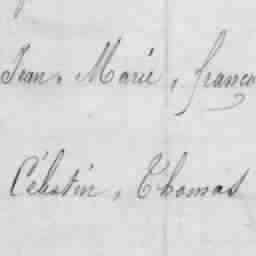 Jean, Marie, franco
Célestin, Thomas